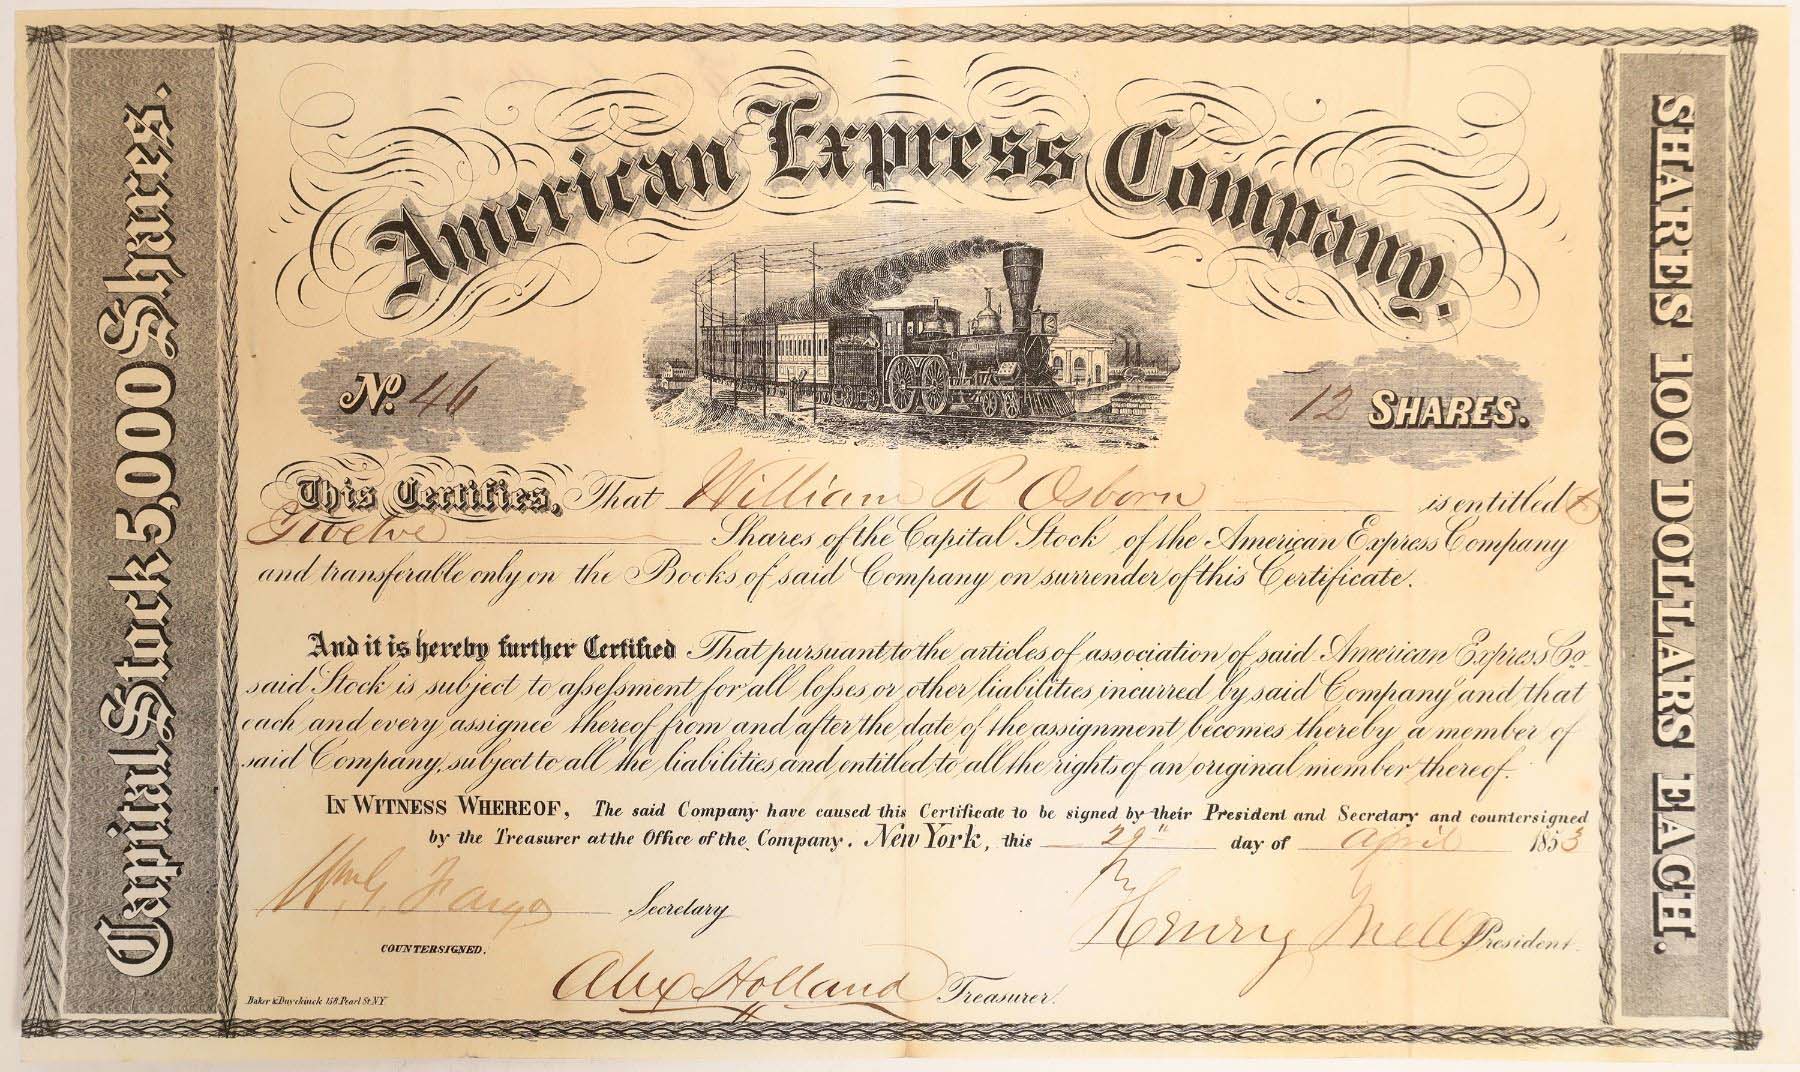 American Express Company.
Capital Stock 5,000 Shares.
SHARES 100 DOLLARS EACH.
No. 46
12 SHARES.
This Certifies, That William R Osborn is entitled to
Twelve Shares of the Capital Stock of the American Express Company
and transferable only on the Books of said Company on surrender of this Certificate.
And it is hereby further Certified That pursuant to the articles of association of said American Express Co.
said Stock is subject to assessment for all losses or other liabilities incurred by said Company and that
each and every assignee thereof from and after the date of the assignment becomes thereby a member of
said Company, subject to all the liabilities and entitled to all the rights of an original member thereof.
IN WITNESS WHEREOF, The said Company have caused this Certificate to be signed by their President and Secretary and countersigned
by the Treasurer at the Office of the Company. New York, this 29" day of April 1853
Wm G. Fargo Secretary
Henry Wells President.
COUNTERSIGNED.
Alex Holland Treasurer.
Baker & Duyckinck 158 Pearl St. N.Y.